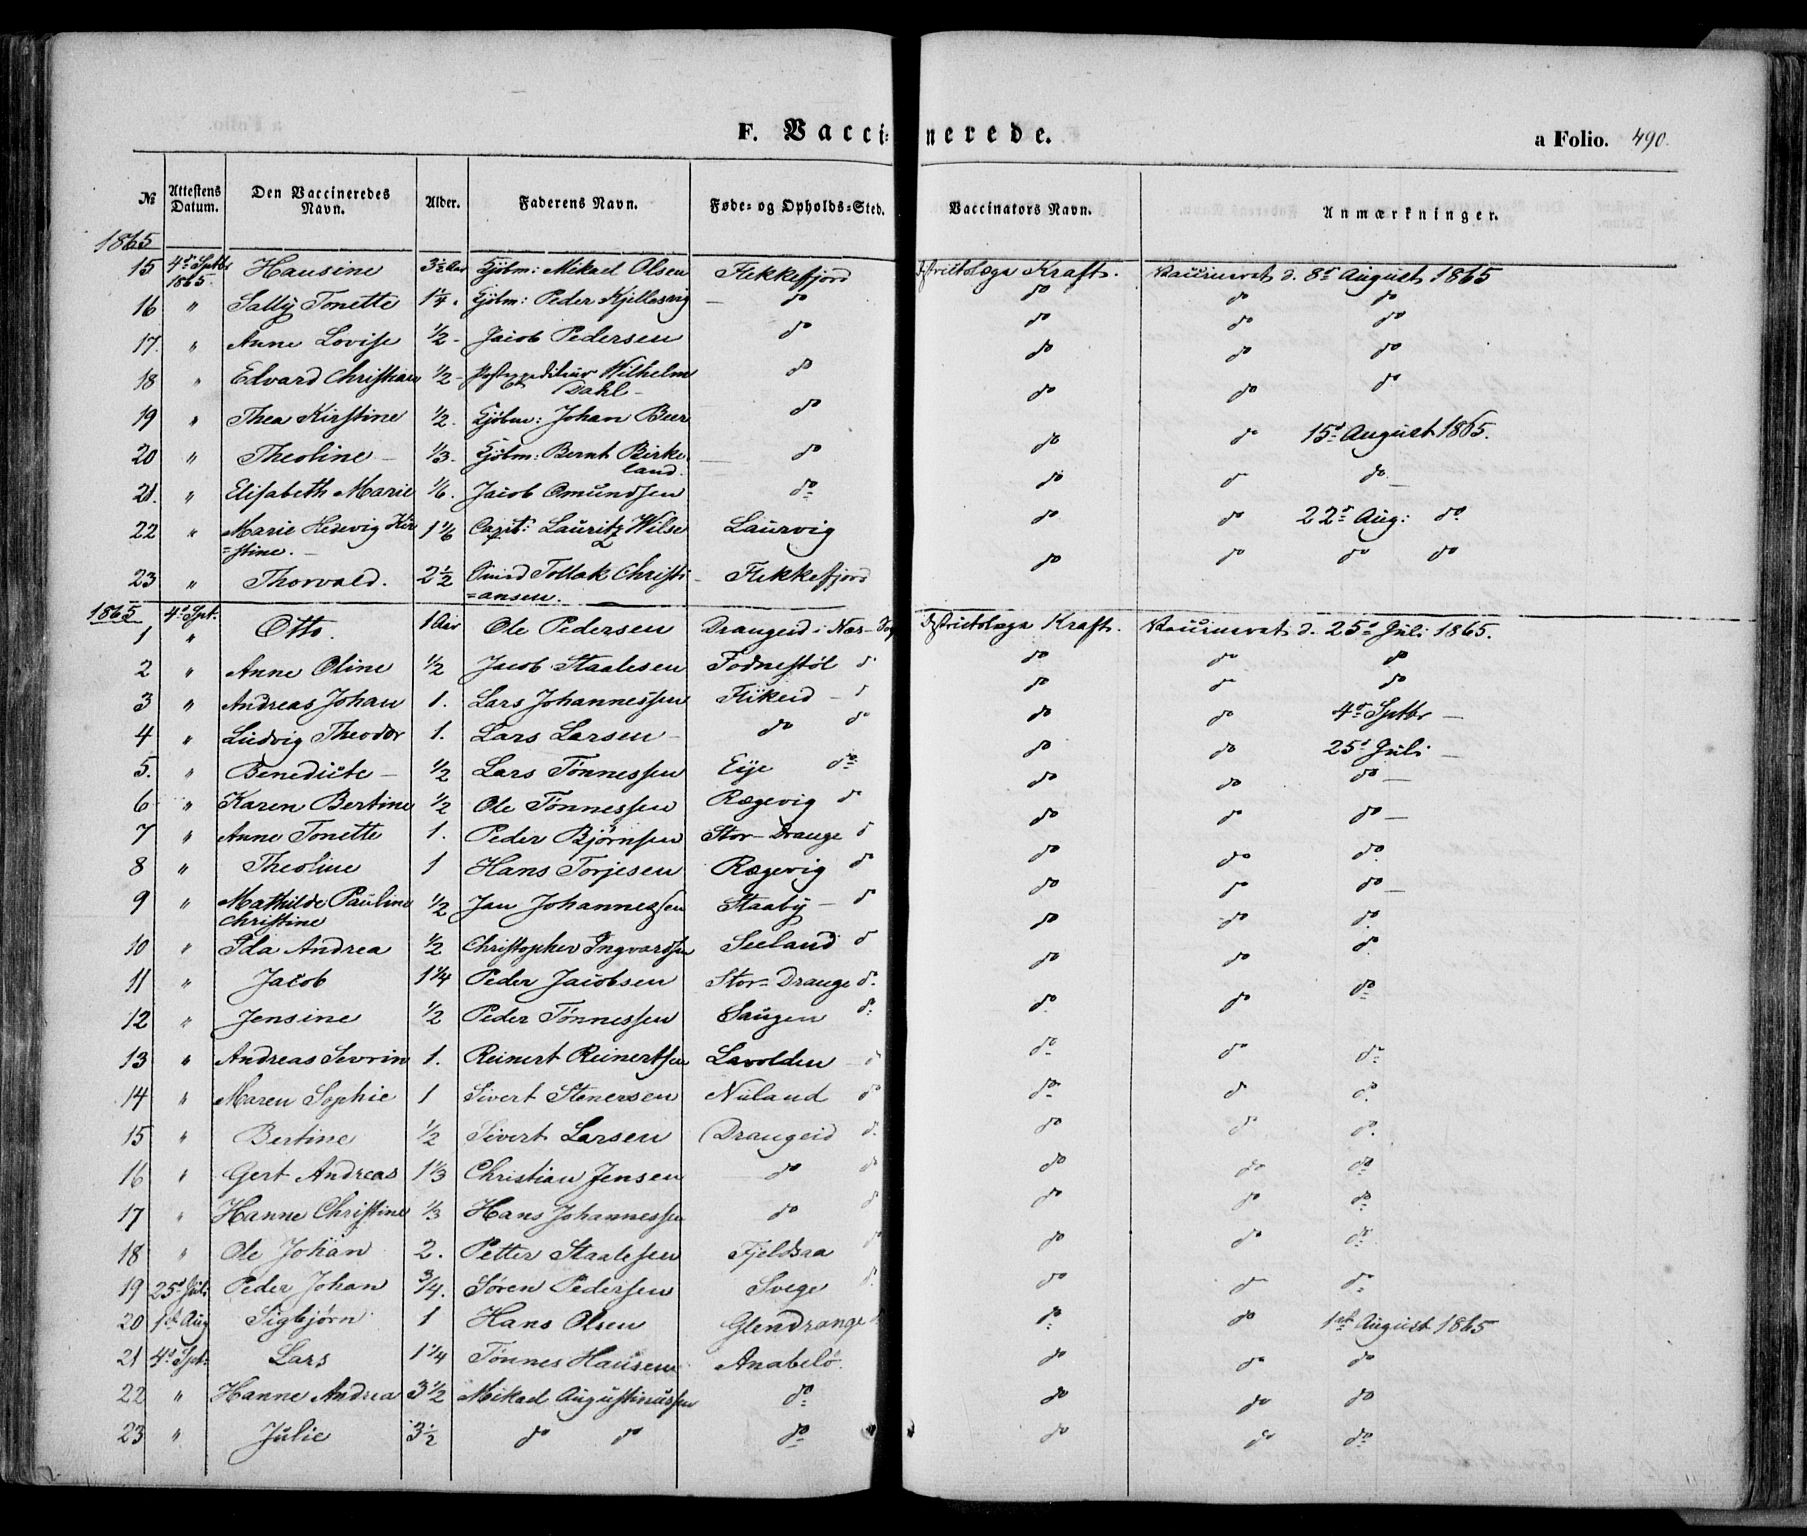 F. Vaccinerede. a Folio. 490.
№ Attestens Datum. Den Vaccineredes Navn. Alder. Faderens Navn. Føde- og Opholds-Sted. Vaccinators Navn. Anmærkninger.
1865
15 4de Sptbr 1865. Hansine 3½ Aar Kjöbm: Mikael Olsen Flekkefjord Districtslæge Kraft. Vaccineret d. 8de August 1865
16 " Sally Tonette 1¼ . Kjöbm: Peder Kjellesvig — do do do do
17. " Anne Lovise ½ - Jacob Pedersen do do do do
18 " Edvard Christian ½ - Postexpediteur Wilhelm Dahl — do do do do
19 " Thea Kirstine ½ . Kjöbm: Johan Beer do do do do
20 " Theoline — ⅓ . Kjöbm: Bernt Birkeland. — do do do 15de August 1865.
21. " Elisabeth Marie ⅙. Jacob Omundsen do do do do
22 " Marie Hedevig Kir=stine. — 1⅙ Capt: Lauritz Wilse Laurvig do do 22de Aug: do
23 " Thorvald. 2½ Tollak Christi=ansen. Flekkefjord do do do do
1865 4de Spt.
1 " Otto. 1 Aar Ole Pedersen Drangeid i Næs Districtslæge Kraft. Vaccineret d. 25de Juli 1865.
2 " Anne Oline ½ Jacob Staalesen Fodnestøl do do do do
3 " Andreas Johan 1. Lars Johannessen Flikeid — do do do do
4 " Ludvig Theodor 1. Lars Larsen — do do do do 4de Sptbr —
5. " Benedicte — ½ Lars Tønnessen Eije do do do 25de Juli —
6 " Karen Bertine ½ Ole Tønnessen Rægevig do do do do —
7 " Anne Tonette 1. Peder Bjørnsen Stor-Drange do do do do —
8 " Theoline 1 Hans Torjesen Rægevig do do do do.
9 " Mathilde Pauline Christine ½ Jan Johannessen Staaby — do do do do —
10 " Ida Andrea ½ Christopher Ingvardsen Seeland do do do do.
11 " Jacob 1¼ Peder Jacobsen Stor-Drange do. do do do.
12 " Jensine ½ Peder Tønnessen Haugen do: do. do do
13 " Andreas Severin 1. Reinert Reinertsen Lavolden — do do do do
14 " Maren Sophie 1 Sivert Stenersen Nuland do do do do.
15 " Bertine ½ Sivert Larsen Drangeid do. do do do.
16 " Gert Andreas 1⅓ Christian Jensen do do do do do
17 " Hanne Christine ⅓ Hans Johannessen do do do do do
18 " Ole Johan 2. Petter Staalesen Fjeldsaa do do do do
19 25de Juli Peder Johan ¾. Søren Pedersen Svege do. do do do
20 1ste Aug Sigbjørn 1 Hans Olsen Glendrange do do do 1ste August 1865
21 4de Spt. Lars 1¼ Tønnes Hansen Anabelø. do do do
22 " Hanne Andrea 3½ Mikael Augustinussen do do do do
23 " Julie 3½ do do do do do do